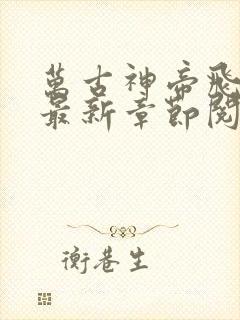 萬古神帝飛
最新章節閱
衡巷生